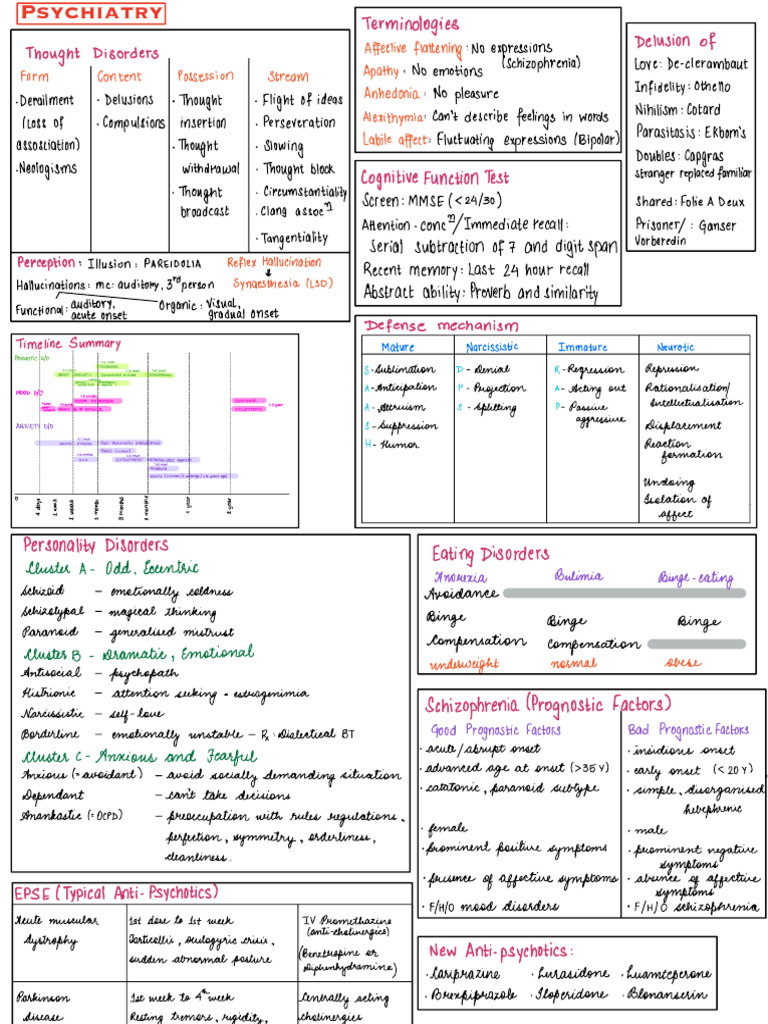 PSYCHIATRY
Thought Disorders
Form Content Possession Stream
• Derailment
(Loss of
association)
• Neologisms
• Delusions
• Compulsions
• Thought
insertion
• Thought
withdrawal
• Thought
broadcast
• Flight of ideas
• Perseveration
• Slowing
• Thought block
• Circumstantiality
• Clang assocⁿ
• Tangentiality
Perception : Illusion : PAREIDOLIA Reflex Hallucination
Hallucinations : mc: auditory, 3rd person Synaesthesia (LSD)
Functional : auditory, acute onset Organic : Visual, gradual onset
Terminologies
Affective flattening : No expressions
(Schizophrenia)
Apathy : No emotions
Anhedonia : No pleasure
Alexithymia : Can't describe feelings in words
Labile affect : Fluctuating expressions (Bipolar)
Cognitive Function Test
Screen : MMSE (<24/30)
Attention • concⁿ / Immediate recall :
Serial subtraction of 7 and digit span
Recent memory : Last 24 hour recall
Abstract ability : Proverb and similarity
Delusion of
Love : De-clerambaut
Infidelity : Othello
Nihilism : Cotard
Parasitosis : Ekbom's
Doubles : Capgras
stranger replaced familiar
Shared : Folie A Deux
Prisoner/ : Ganser
Vorberedin
Timeline Summary
MOOD D/O
ANXIETY D/O
Defense mechanism
Mature Narcissistic Immature Neurotic
S - Sublimation
A - Anticipation
A - Altruism
S - Suppression
H - Humor
D - Denial
P - Projection
S - Splitting
R - Regression
A - Acting out
P - Passive
aggressive
Repression
Rationalisation/
Intellectualisation
Displacement
Reaction
formation
Undoing
Isolation of
affect
Personality Disorders
Cluster A - Odd, Eccentric
Schizoid – emotionally coldness
Schizotypal – magical thinking
Paranoid – generalised mistrust
Cluster B – Dramatic, Emotional
Antisocial – psychopath
Histrionic – attention seeking
Narcissistic – self-love
Borderline – emotionally unstable – Rx : Dialectical BT
Cluster C - Anxious and Fearful
Anxious (= avoidant) – avoid socially demanding situation
Dependant – can't take decisions
Anankastic (= OCPD) – preoccupation with rules regulations,
perfection, symmetry, orderliness,
cleanliness.
Eating Disorders
Anorexia Bulimia Binge-eating
Avoidance
Binge Binge Binge
Compensation Compensation
underweight normal obese
Schizophrenia (Prognostic Factors)
Good Prognostic Factors
• acute/abrupt onset
• advanced age at onset (>35 Y)
• catatonic, paranoid subtype
• female
• prominent positive symptoms
• presence of affective symptoms
• F/H/O mood disorders
Bad Prognostic Factors
• insidious onset
• early onset (<20 Y)
• simple, disorganised
hebephrenic
• male
• prominent negative
symptoms
• absence of affective
symptoms
• F/H/O schizophrenia
EPSE (Typical Anti-Psychotics)
Acute muscular
dystrophy
1st dose to 1st week
Torticollis, oculogyric crisis,
sudden abnormal posture
IV Promethazine
(anti-cholinergics)
(Benztropine or
Diphenhydramine)
Parkinson
disease
1st week to 4th week
Resting tremors, rigidity,
Centrally acting
cholinergics
New Anti-psychotics :
• Cariprazine • Lurasidone • Luamteperone
• Brexpiprazole • Iloperidone • Blonanserin